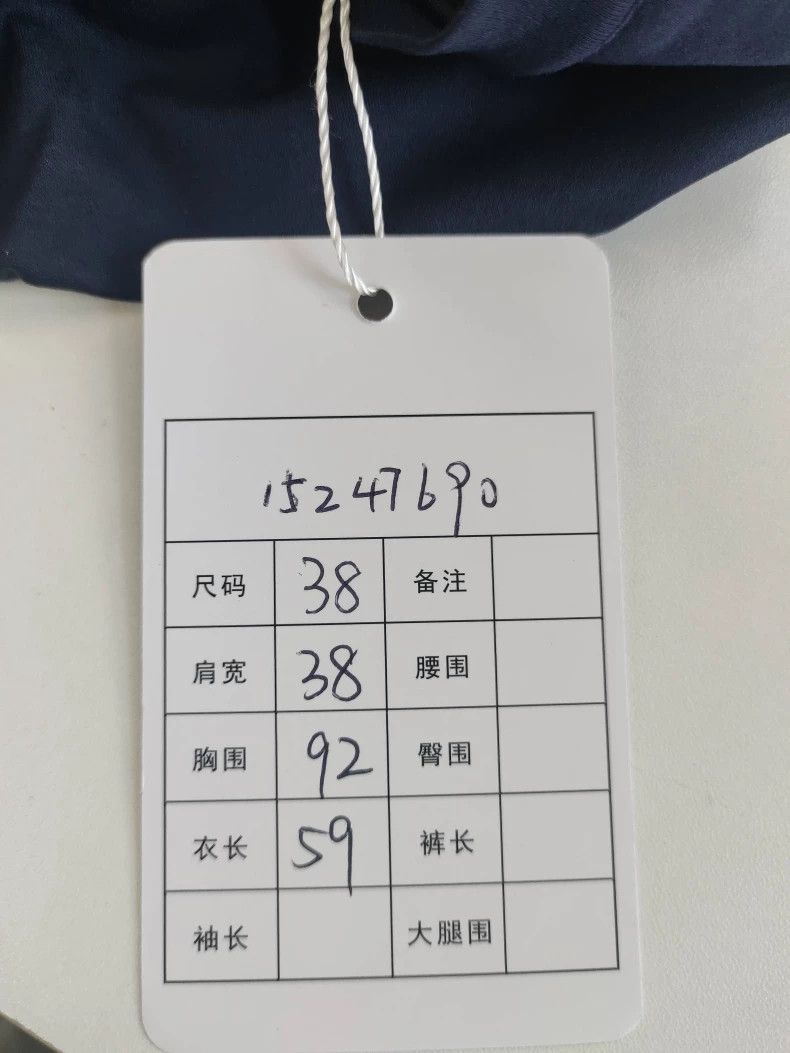 15247690
尺码 38 备注
肩宽 38 腰围
胸围 92 臀围
衣长 59 裤长
袖长 大腿围